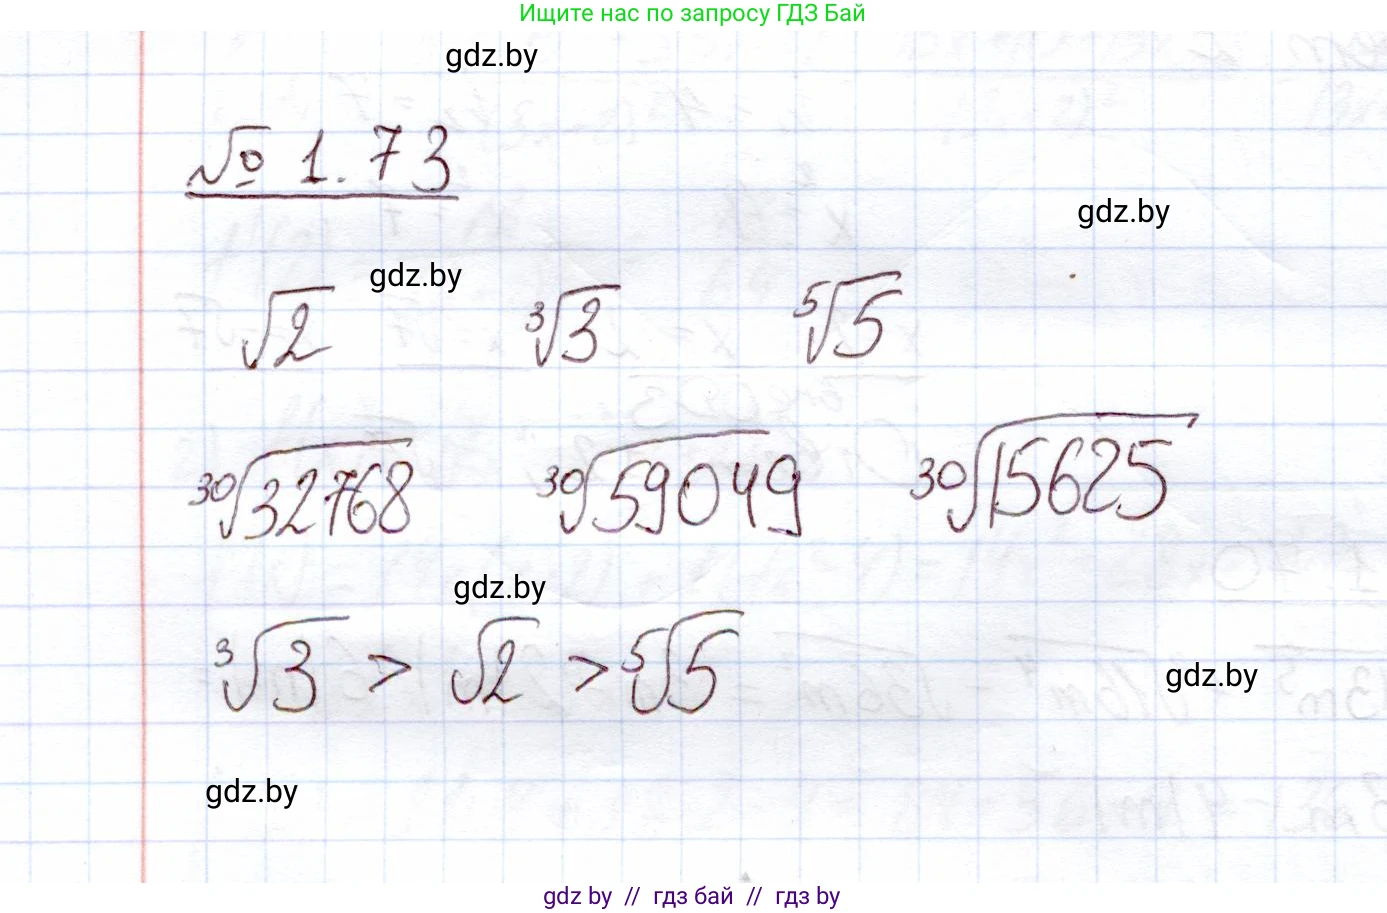 Ищите нас по запросу ГДЗ Бай
gdz.by
№ 1.73
gdz.by
gdz.by
√2 ³√3 ⁵√5
³⁰√32768 ³⁰√59049 ³⁰√15625
gdz.by
³√3 > √2 > ⁵√5
gdz.by
gdz.by
gdz by // гдз бай // гдз by